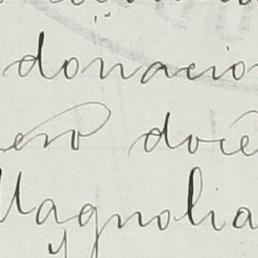 donacio
ero doce
Magnolia